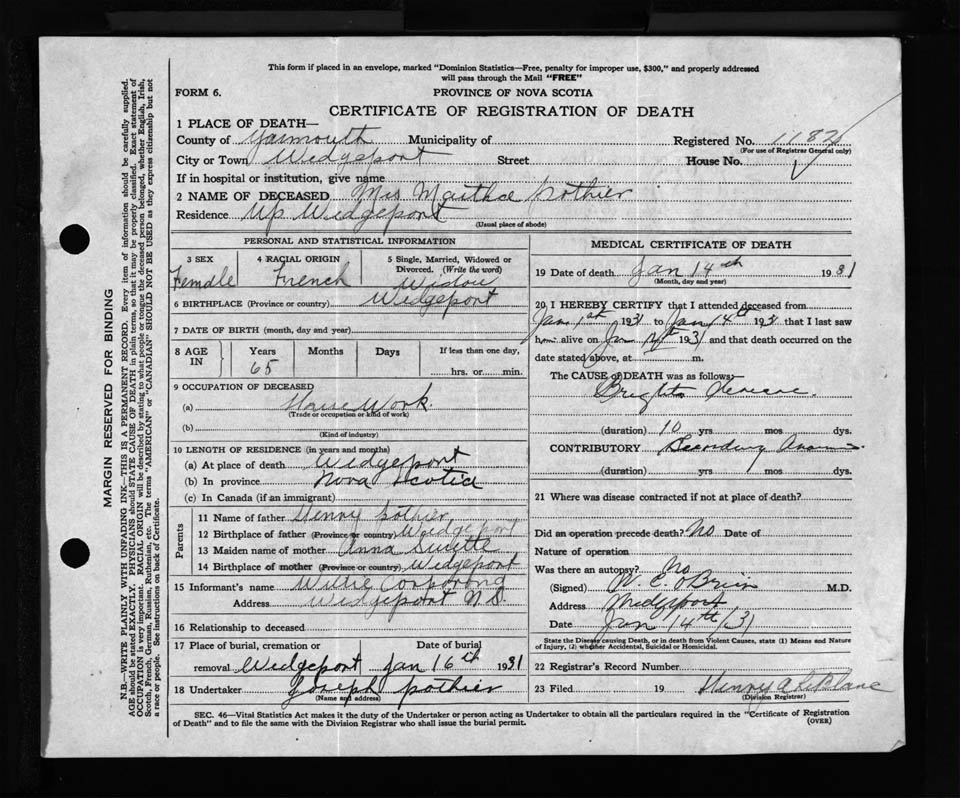 This form if placed in an envelope, marked "Dominion Statistics—Free, penalty for improper use, $300," and properly addressed
will pass through the Mail "FREE"
FORM 6.
PROVINCE OF NOVA SCOTIA
CERTIFICATE OF REGISTRATION OF DEATH
1 PLACE OF DEATH—
County of Yarmouth Municipality of Registered No.
(For use of Registrar General only)
City or Town Wedgeport Street House No.
If in hospital or institution, give name
2 NAME OF DECEASED Mrs Pothier
Residence Up Wedgeport
(Usual place of abode)
PERSONAL AND STATISTICAL INFORMATION
3 SEX 4 RACIAL ORIGIN 5 Single, Married, Widowed or
Divorced. (Write the word)
Female French Widow
6 BIRTHPLACE (Province or country) Wedgeport
7 DATE OF BIRTH (month, day and year)
8 AGE IN Years Months Days If less than one day,
65 hrs. or min.
9 OCCUPATION OF DECEASED
(a) House Work
(Trade or occupation or kind of work)
(b)
(Kind of industry)
10 LENGTH OF RESIDENCE (in years and months)
(a) At place of death Wedgeport
(b) In province Nova Scotia
(c) In Canada (if an immigrant)
Parents
11 Name of father Henry Pothier
12 Birthplace of father (Province or country) Wedgeport
13 Maiden name of mother Anna
14 Birthplace of mother (Province or country) Wedgeport
15 Informant's name Willie
Address Wedgeport N.S.
16 Relationship to deceased
17 Place of burial, cremation or Date of burial
removal Wedgeport Jan 16th 1931
18 Undertaker Joseph Pothier
(Name and address)
MEDICAL CERTIFICATE OF DEATH
19 Date of death Jan 14th 1931
(Month, day and year)
20 I HEREBY CERTIFY that I attended deceased from
Jan 1st 1931 to Jan 14th 1931 that I last saw
h alive on Jan 1931 and that death occurred on the
date stated above, at m.
The CAUSE of DEATH was as follows:
Brights Disease.
(duration) 10 yrs mos dys.
CONTRIBUTORY Secondary
(duration) yrs mos dys.
21 Where was disease contracted if not at place of death?
Did an operation precede death? No Date of
Nature of operation
Was there an autopsy? No
(Signed) O'Brien M.D.
Address Wedgeport
Date Jan 14th 31
State the Disease causing Death, or in death from Violent Causes, state (1) Means and Nature
of Injury, (2) whether Accidental, Suicidal or Homicidal.
22 Registrar's Record Number
23 Filed 19 Henry A LeBlanc
(Division Registrar)
SEC. 46—Vital Statistics Act makes it the duty of the Undertaker or person acting as Undertaker to obtain all the particulars required in the "Certificate of Registration
of Death" and to file the same with the Division Registrar who shall issue the burial permit.
(OVER)
MARGIN RESERVED FOR BINDING
N.B.—WRITE PLAINLY WITH UNFADING INK—THIS IS A PERMANENT RECORD. Every item of information should be carefully supplied.
AGE should be stated EXACTLY. PHYSICIANS should STATE CAUSE OF DEATH in plain terms, so that it may be properly classified. Exact statement of
OCCUPATION is very important. RACIAL ORIGIN will be described by stating to what people or tongue the deceased person belonged, whether English, Irish,
Scotch, French, German, Russian, Ruthenian, etc. The terms "AMERICAN" or "CANADIAN" SHOULD NOT BE USED as they express citizenship but not
a race or people. See instructions on back of Certificate.